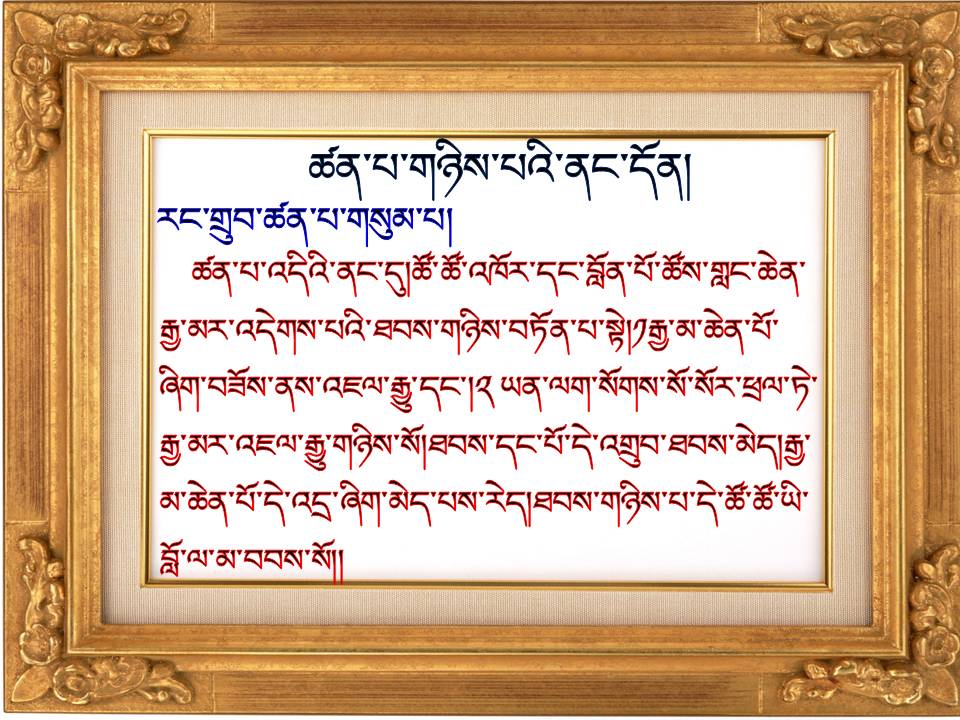 ཚན་པ་གཉིས་པའི་ནང་དོན།
རང་གྲུབ་ཚན་པ་གསུམ་པ།
ཚན་པ་འདིའི་ནང་དུ།ཚོ་ཚོ་འཁོར་དང་བློན་པོ་ཚོས་གླང་ཆེན་
རྒྱ་མར་འདེགས་པའི་ཐབས་གཉིས་བཏོན་པ་སྟེ།༡རྒྱ་མ་ཆེན་པོ་
ཞིག་བཟོས་ནས་འཇལ་རྒྱུ་དང་།༢ ཡན་ལག་སོགས་སོ་སོར་ཕྲལ་ཏེ་
རྒྱ་མར་འཇལ་རྒྱུ་གཉིས་སོ།ཐབས་དང་པོ་དེ་འགྲུབ་ཐབས་མེད།རྒྱ་
མ་ཆེན་པོ་དེ་འདྲ་ཞིག་མེད་པས་རེད།ཐབས་གཉིས་པ་དེ་ཚོ་ཚོ་ཡི་
བློ་ལ་མ་བབས་སོ།།